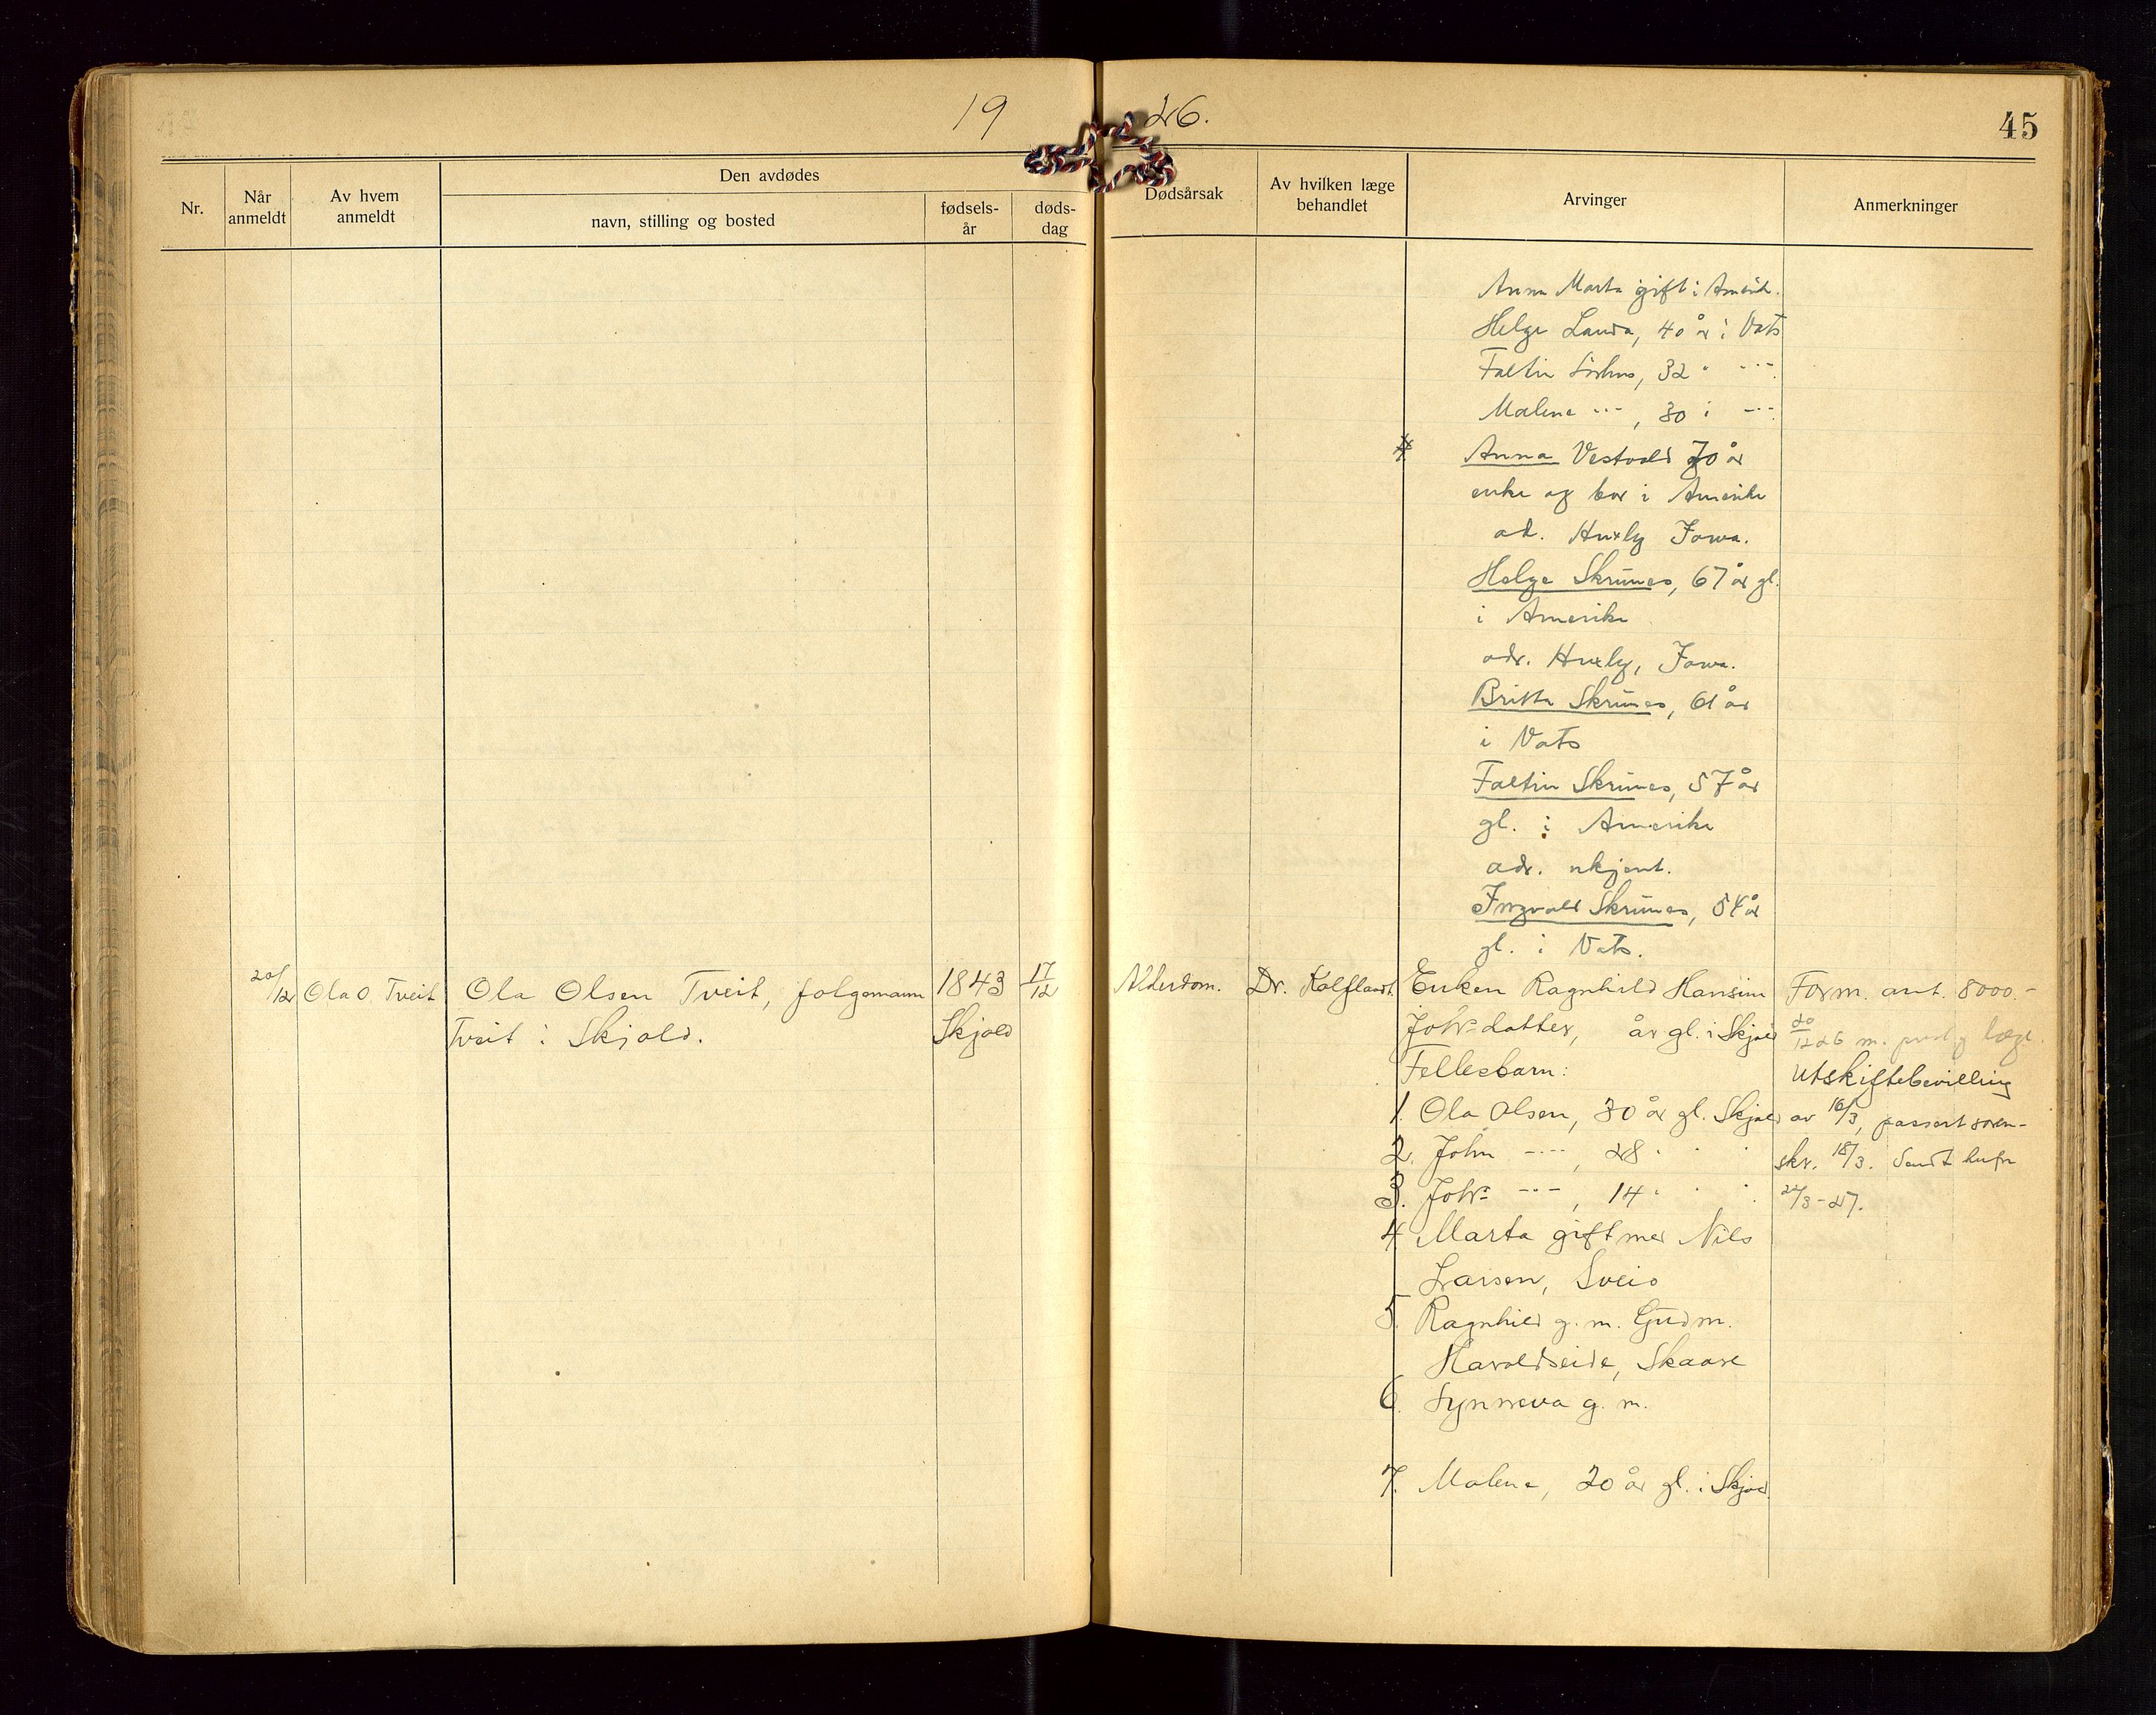 19 26.
45
Nr.
Når anmeldt
Av hvem anmeldt
Den avdødes
navn, stilling og bosted
fødsels-år
døds-dag
Dødsårsak
Av hvilken læge behandlet
Arvinger
Anmerkninger
Anna Marta gift i Amerik.
Helge Landa, 40 år i Vats
Faltin Sörhus, 32 " ---
Malene ---, 30 i ---
Anna Vestvold 70 år
enke og bor i Amerika
ad. Huxly Iowa.
Helge Skrunes, 67 år gl.
i Amerika
adr. Huxly, Iowa.
Britta Skrunes, 61 år
i Vats
Faltin Skrunes, 57 år
gl. i Amerika
adr. ukjent.
Ingvald Skrunes, 54 år
gl. i Vats.
20/12 Ola O. Tveit Ola Olsen Tveit, folgemann 1843 17/12 Alderdom. Dr. Kalfland. Enken Ragnhild Hansine Form. ant. 8000.-
Tveit i Skjold. Skjold Johs-datter, år gl. i Skjold 20/12 26 m. læge
Fellesbarn: Utskiftebevilling
1. Ola Olsen, 30 år gl. Skjold av 16/3, passert soren-
2. John ----, 28 " " " skr. 18/3. Sendt
3. Johs ---, 14 " " " 22/3-27.
4 Marta gift med Nils
Larsen, Sveio
5. Ragnhild g. m. Gudm.
Haraldseide, Skaare
6. Synneva g. m.
7. Malene, 20 år gl. i Skjold